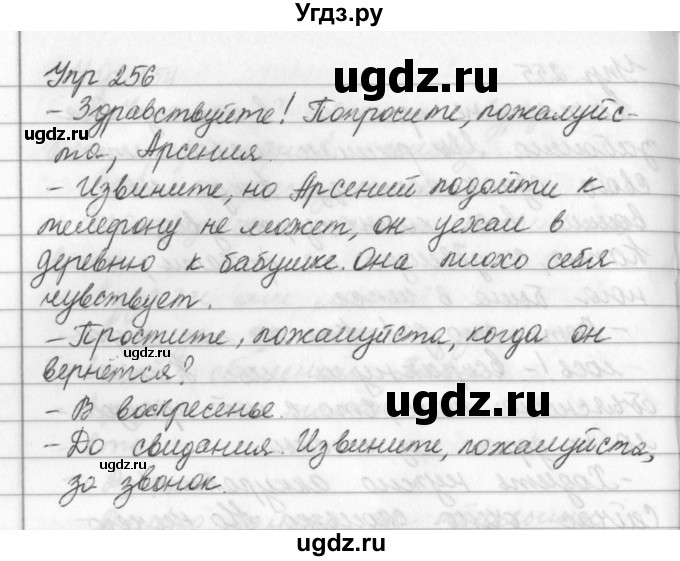 Угдз.ру
Упр 256
ugdz.ru
– Здравствуйте! Попросите, пожалуйс-
ugdz.ru
та, Арсения.
ugdz.ru
– Извините, но Арсений подойти к
телефону не может, он уехал в
деревню к бабушке. Она плохо себя
чувствует.
– Простите, пожалуйста, когда он
ugdz.ru
вернётся?
ugdz.ru
– В воскресенье.
– До свидания. Извините, пожалуйста,
ugdz.ru
за звонок.
ugdz.ru